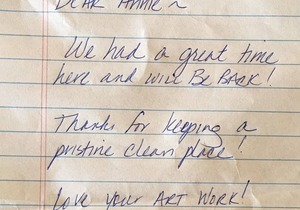 DEAR ANNIE ~
We had a great time
here and will Be BACK!
Thanks for keeping a
pristine clean place!
Love your ART WORK!